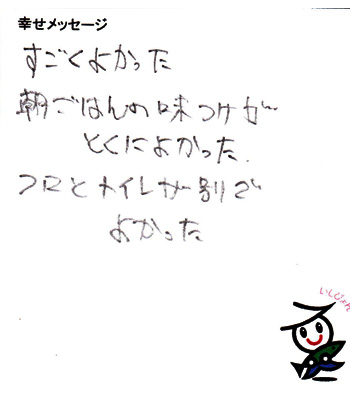 幸せメッセージ
すごくよかった
朝ごはんの味つけが
とくによかった.
フロとトイレが別で
よかった